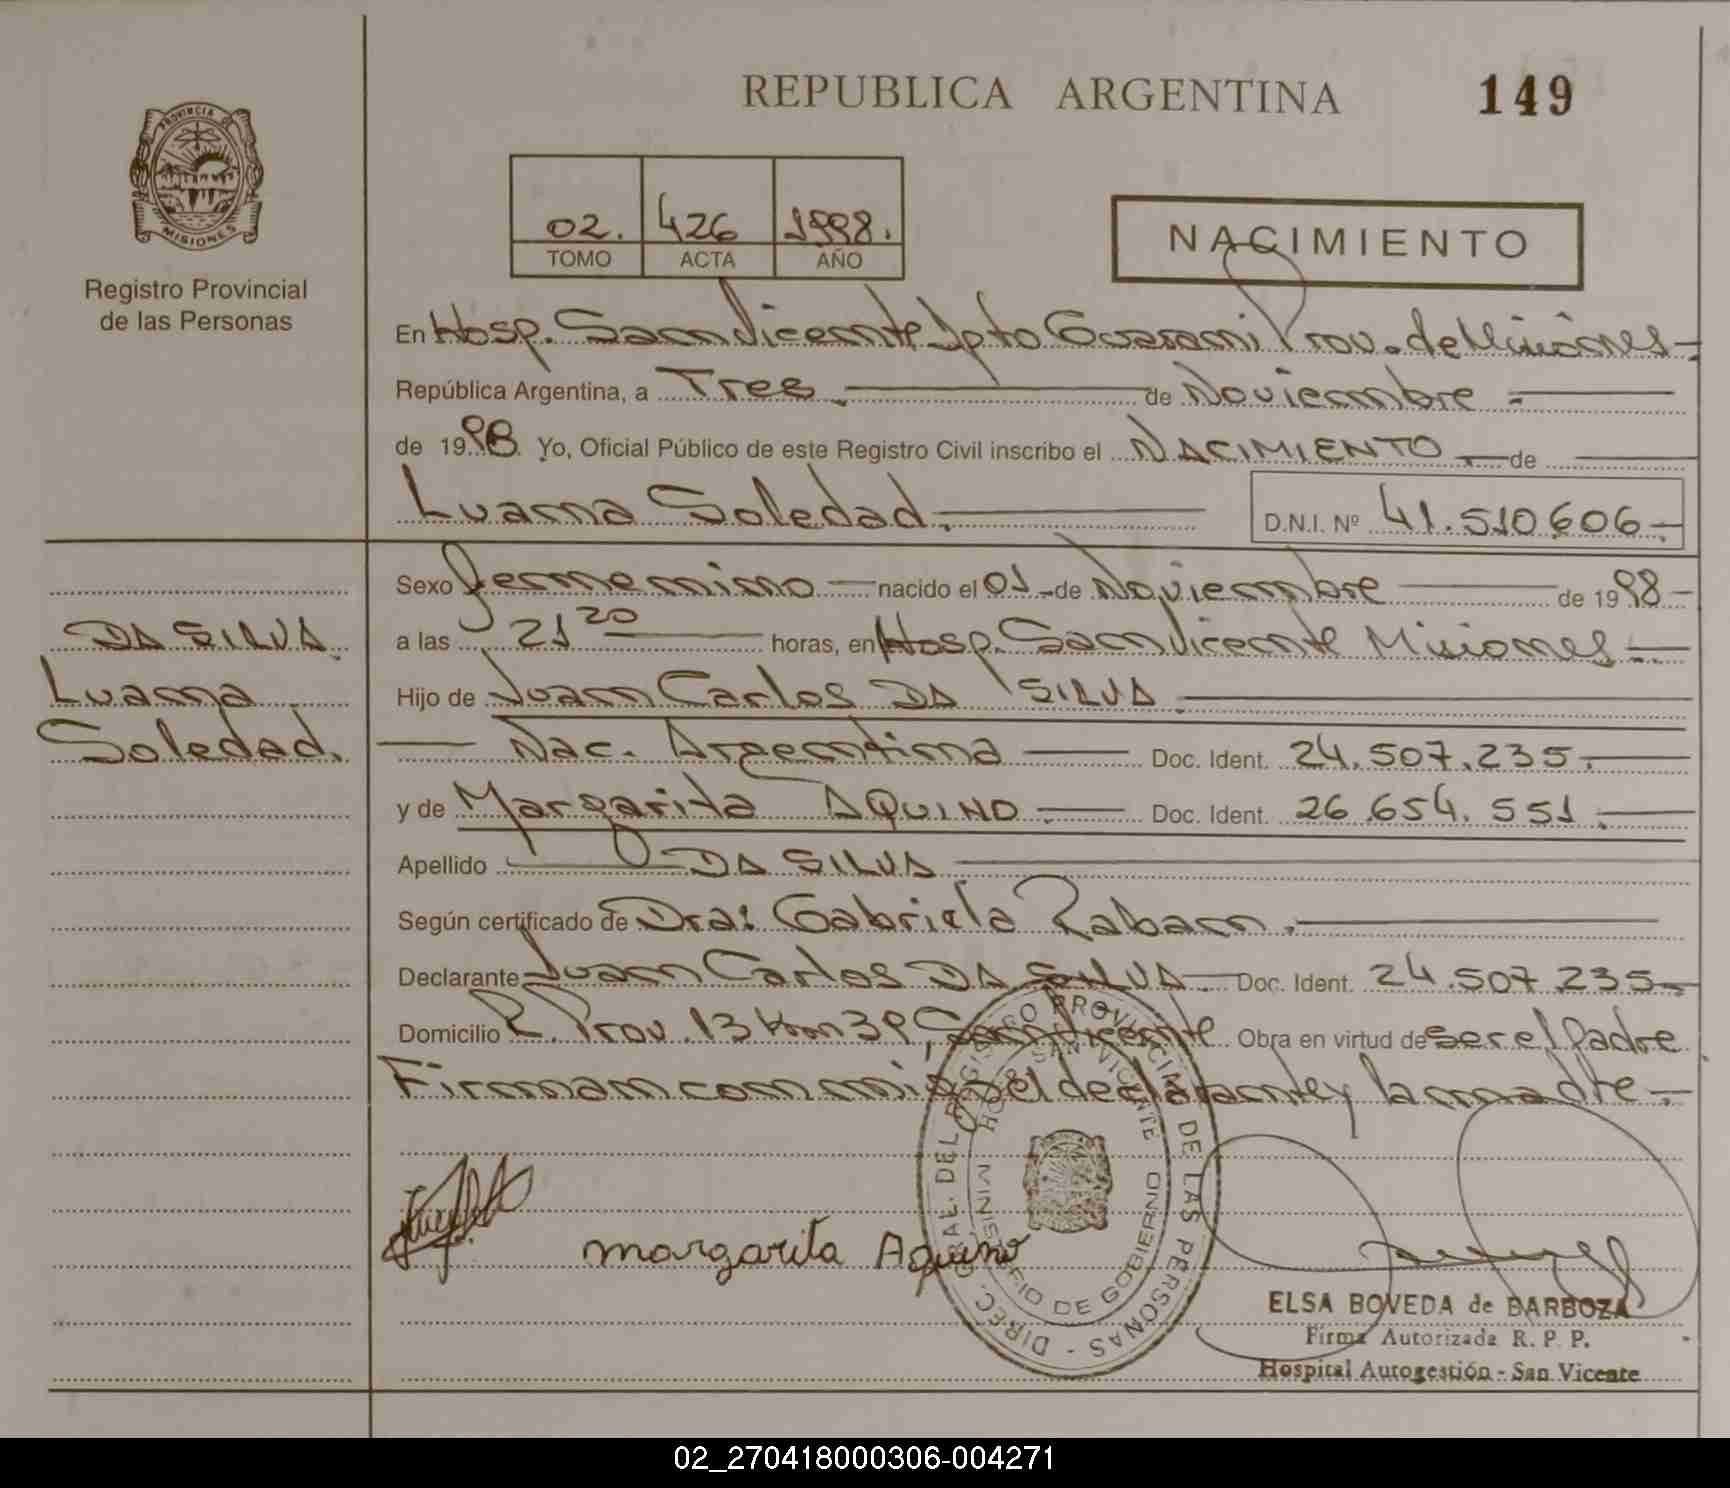 REPUBLICA ARGENTINA 149
PROVINCIA DE
MISIONES
Registro Provincial
de las Personas
02. 426 1998.
TOMO ACTA AÑO
NACIMIENTO
En Hosp. San Vicente Dpto Guarani Prov. de Misiones
República Argentina, a Tres. de Noviembre
de 1998 Yo, Oficial Público de este Registro Civil inscribo el NACIMIENTO de
Luana Soledad.
D.N.I. Nº 41.510.606
DA SILVA
Luana
Soledad.
Sexo femenino nacido el 01 de Noviembre de 1998
a las 21 20 horas, en Hosp. San Vicente Misiones
Hijo de Juan Carlos DA SILVA
Nac. Argentina Doc. Ident. 24.507.235.
y de Margarita AQUINO Doc. Ident. 26.654.551.
Apellido DA SILVA
Según certificado de Dra: Gabriela Raban.
Declarante Juan Carlos DA SILVA Doc. Ident. 24.507.235
Domicilio R. Prov. 13 Km 39, San Vicente Obra en virtud de ser el Padre
Firman conmigo el declarante y la madre
margarita Aquino
DIREC. GRAL. DEL REGISTRO PROVINCIAL DE LAS PERSONAS -
HOSP. SAN VICENTE
MINISTERIO DE GOBIERNO
ELSA BOVEDA de BARBOZA
Firma Autorizada R. P. P.
Hospital Autogestión - San Vicente
02_270418000306-004271